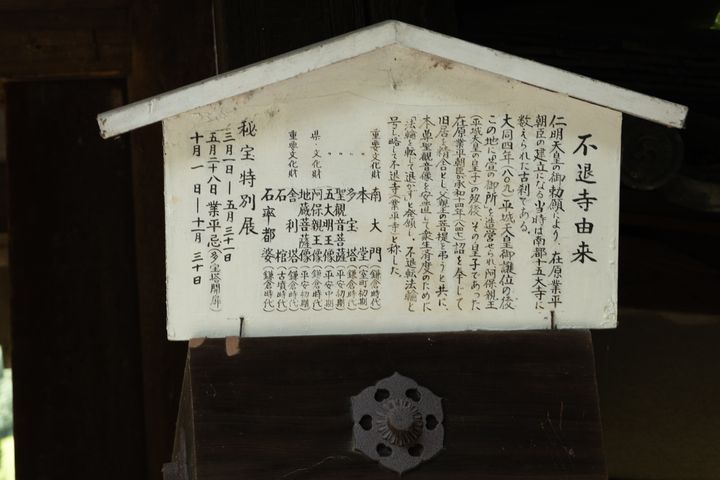 不退寺由来
仁明天皇の御勅願により、在原業平
朝臣の建立になる当時は南都十五大寺に
数えられた古刹である。
大同四年(八〇九)平城天皇御譲位の後
この地に萱の御所を造営せられ阿保親王
(平城天皇の皇子)の歿後、その皇子であった
在原業平朝臣が承和十四年(八四七)詔を奉して
旧居を精舎とし父親王の菩提を弔うと共に、
本尊聖観音像を安置して衆生済度のために
「法輪を転して退かず」と発願し、不退転法輪寺と
号し略して不退寺(業平寺)と称した。
重要文化財 南大門(鎌倉時代)
〃 本堂(室町初期)
〃 多宝塔(鎌倉時代)
〃 聖観音菩薩(平安初期)
〃 五大明王像(平安中期)
県・文化財 阿保親王像(鎌倉時代)
〃 地蔵菩薩像(平安初期)
重要文化財 舎利塔(鎌倉時代)
石棺(古墳時代)
石率都婆(鎌倉時代)
秘宝特別展
三月一日―五月三十一日
五月二十八日 業平忌(多宝塔開扉)
十月一日―十一月三十日